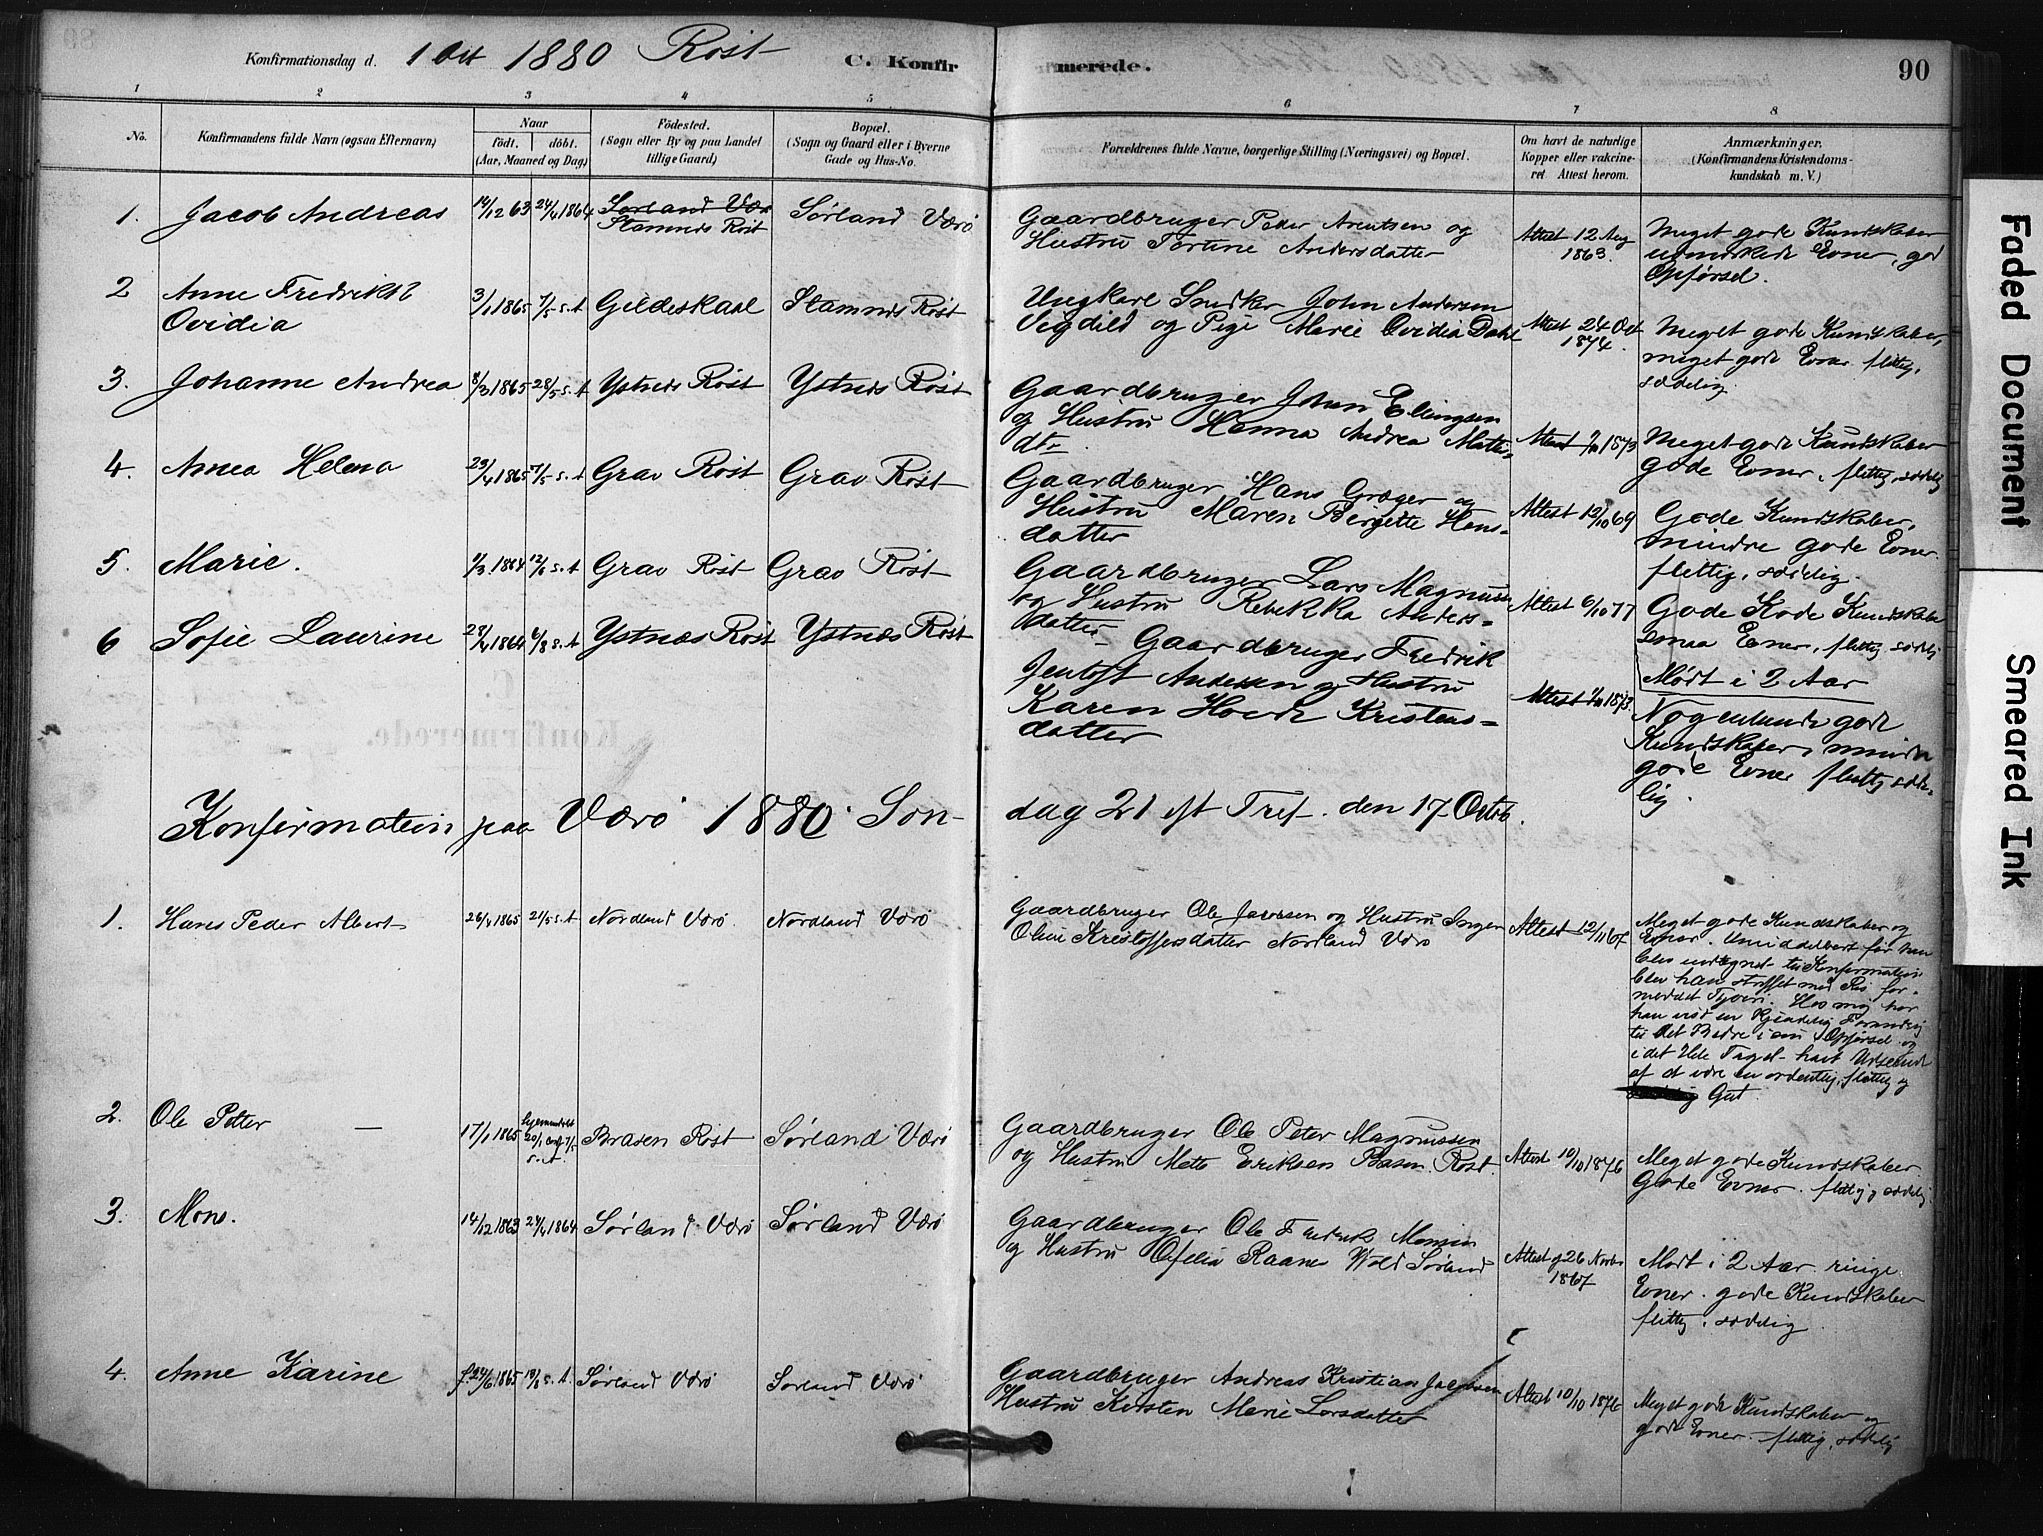 Konfirmationsdag d. 1 Oct 1880 Röst C. Konfirmerede. 90
1 2 3 4 5 6 7 8
No.
Konfirmandens fulde Navn (ogsaa Efternavn)
Naar
födt. döbt.
(Aar, Maaned og Dag)
Födested.
(Sogn eller By og paa Landet
tillige Gaard)
Bopæl.
(Sogn og Gaard eller i Byerne
Gade og Hus-No.
Forældrenes fulde Navne, borgerlige Stilling (Næringsvei) og Bopæl.
Om havt de naturlige
Kopper eller vakcine-
ret Attest herom.
Anmærkninger.
(Konfirmandens Kristendoms-
kundskab m. V.)
1. Jacob Andreas 14/12 63 24/4 1864 Sørland Værø Sørland Værø
Stamnes Röst
Gaardbruger Peder Arentsen og
Hustru Tortine Andersdatter
Attest 12 Aug
1863.
Meget gode Kundskaber
udmærkede Evner, god
Opførsel.
2 Anne Fredrikke
Ovidia
3/1 1865 7/5 s. A Gildeskaal Stamnes Röst
Ungkarl Snedker John Andersen
Vigdild og Pige Marie Ovidia Dahl
Attest 24 Oct
1874.
Meget gode Kundskaber,
meget gode Evner. flittig,
sædelig.
3. Johanne Andrea 8/3 1865 28/5 s. A Ystnes Röst Ystnes Röst
Gaardbruger Johan Ellingsen
og Hustru Hanna Andrea Matis-
dtr
Attest 1873
Meget gode Kundskaber
gode Evner, flittig, sædelig
4. Anna Helena 23/4 1865 7/5 s. A Grav Röst Grav Röst
Gaardbruger Hans Græger og
Hustru Maren Birgitte Hans-
datter
Attest 12/10 69
Gode Kundskaber,
mindre gode Evner.
flittig, sædelig.
5. Marie. 1864 12/6 s. A Grav Röst Grav Röst
Gaardbruger Lars Magnussen
og Hustru Rebekka Anders-
datter
Attest 6/10 77
Gode Kundskaber
smaa Evner, flittig, sædelig
Mødt i 2 Aar
6 Sofie Laurine 28/4 1864 6/8 s. A Ystnæs Röst Ystnæs Röst
Gaardbruger Fredrik
Jentoft Andersen og Hustru
Karen Hovde Kristens-
datter
Attest 1873.
Nogenlunde gode
Kundskaber, mindre
gode Evner flittig sæde-
lig.
Konfirmation paa Værø 1880. Søn-
dag 21 eft Tref. den 17 Octob.
1. Hans Peder Albert 26/4 1865 21/5 s. A Nordland Værø Nordland Værø
Gaardbruger Ole Jacobsen og Hustru Inger
Oline Kristoffersdatter Nordland Værø
Attest 12/11 67
Meget gode Kundskaber og
Evner. Umiddelbart før han
blev indtegnet til Konfirmation
blev han straffet med Ris for-
medelst Tyveri. Hos mig har
han vist en kjendelig Forandring
til det Bedre i sin Opførsel og
i det Hele Taget havt Udseende
af at være en ordentlig, flittig og
Gut.
2. Ole Petter — 17/1 1865 Brasen Röst Sørland Værø
Gaardbruger Ole Peter Magnussen
og Hustru Mette Eriksen Basen Röst.
Attest 10/10 1876
Meget gode Kundskaber
Gode Evner. flittig, sædelig
3. Mons. 14/12 1863 24/4 1864 Sørland Værø Sørland Værø
Gaardbruger Ole Fredrik Monsen
og Hustru Ofelia Raane Wold Sørland
Attest af 26 Novbr
1867
Mødt i 2 Aar ringe
Evner. gode Kundskaber
flittig, sædelig.
4. Anne Karine f. 24/6 1865 19/8 s. A. Sørland Værø Sørland Værø
Gaardbruger Andreas Kristian Jacobsen
Hustru Kirsten Marie Larsdatter
Attest 10/10 1876
Meget gode Kundskaber og
gode Evner. flittig, sædelig
Faded Document
Smeared Ink